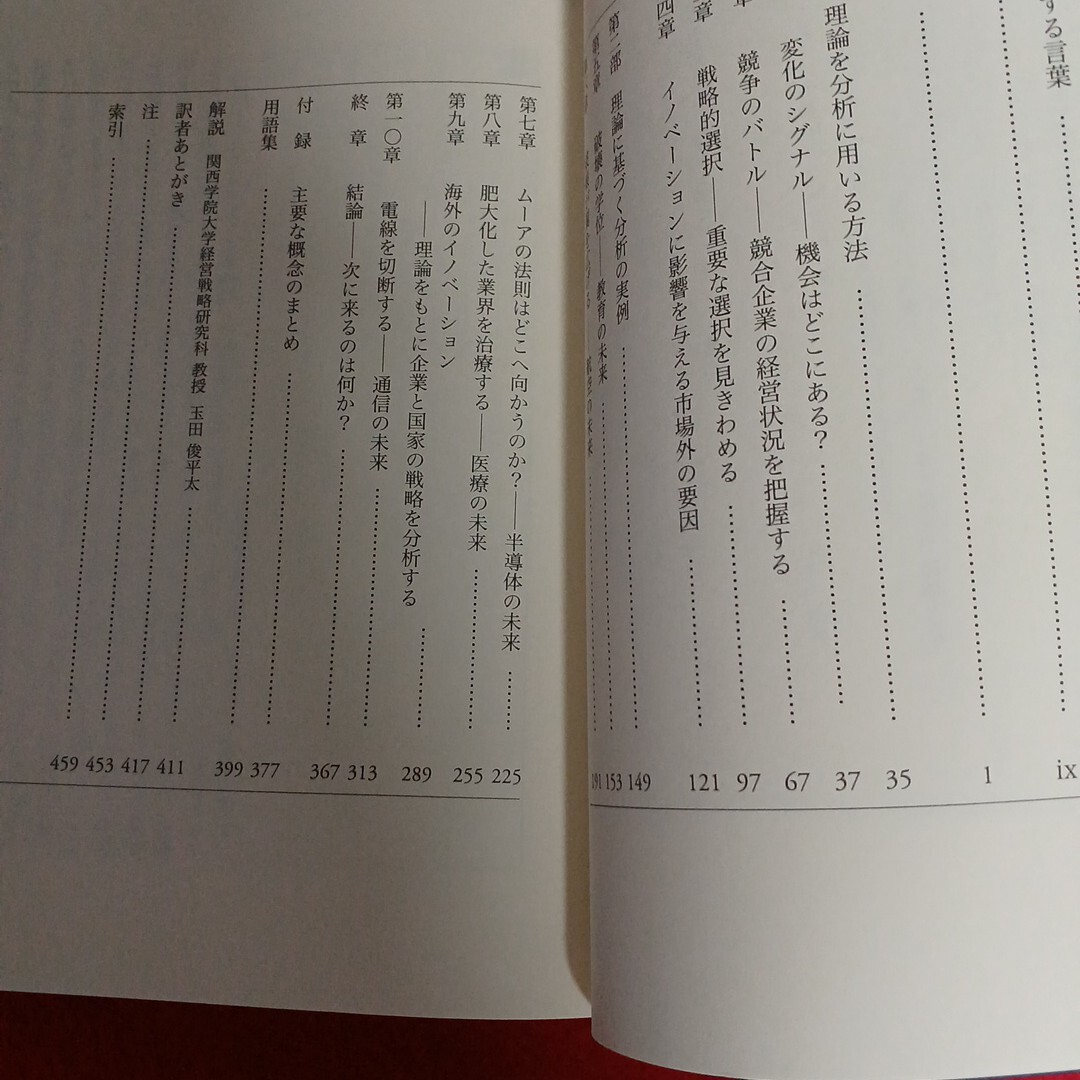 する言葉 ix
1
理論を分析に用いる方法 35
変化のシグナル——機会はどこにある? 37
章 競争のバトル——競合企業の経営状況を把握する 67
章 戦略的選択——重要な選択を見きわめる 97
四章 イノベーションに影響を与える市場外の要因 121
第二部 理論に基づく分析の実例 149
第五章 破壊の学位——教育の未来 153
未来 191
第七章 ムーアの法則はどこへ向かうのか?——半導体の未来 225
第八章 肥大化した業界を治療する——医療の未来 255
第九章 海外のイノベーション
——理論をもとに企業と国家の戦略を分析する 289
第一〇章 電線を切断する——通信の未来 313
終章 結論——次に来るのは何か? 367
付録 主要な概念のまとめ 377
用語集 399
解説 関西学院大学経営戦略研究科 教授 玉田 俊平太 411
訳者あとがき 417
注 453
索引 459